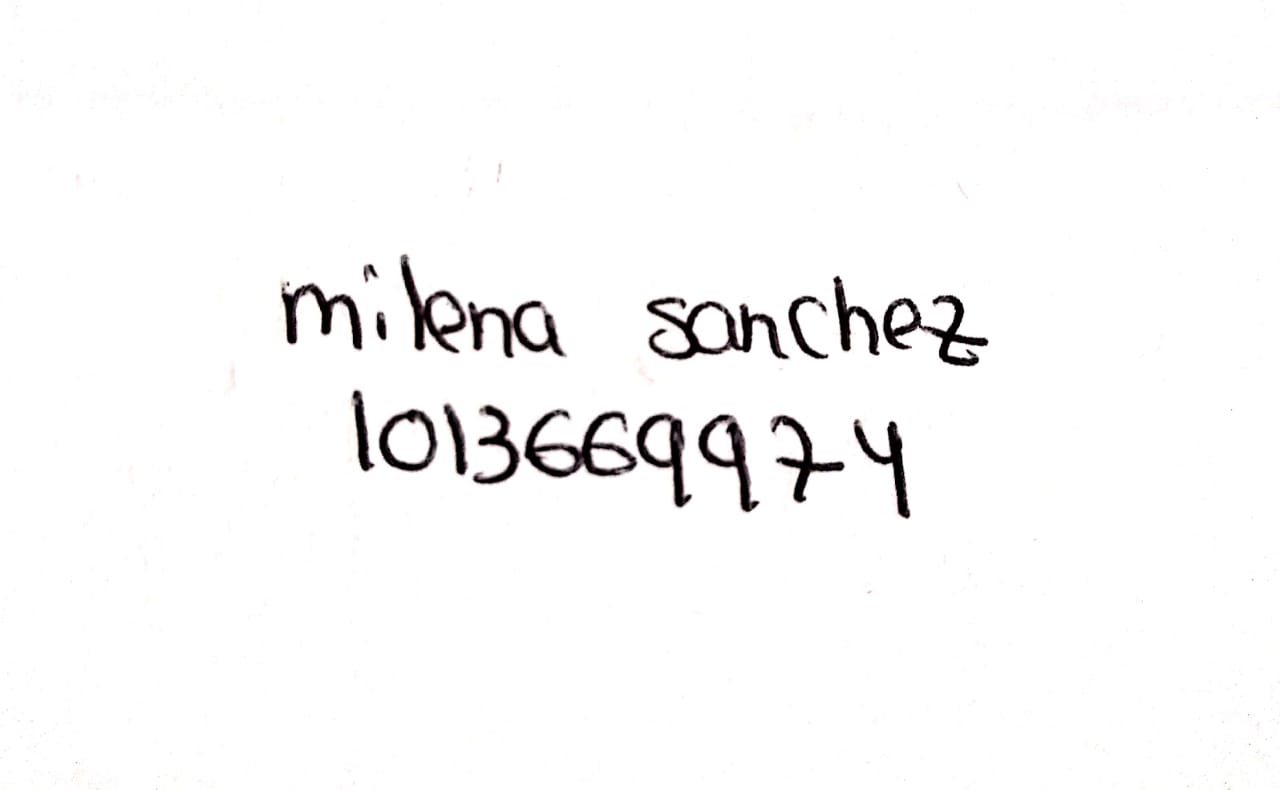 milena sanchez
1013669974